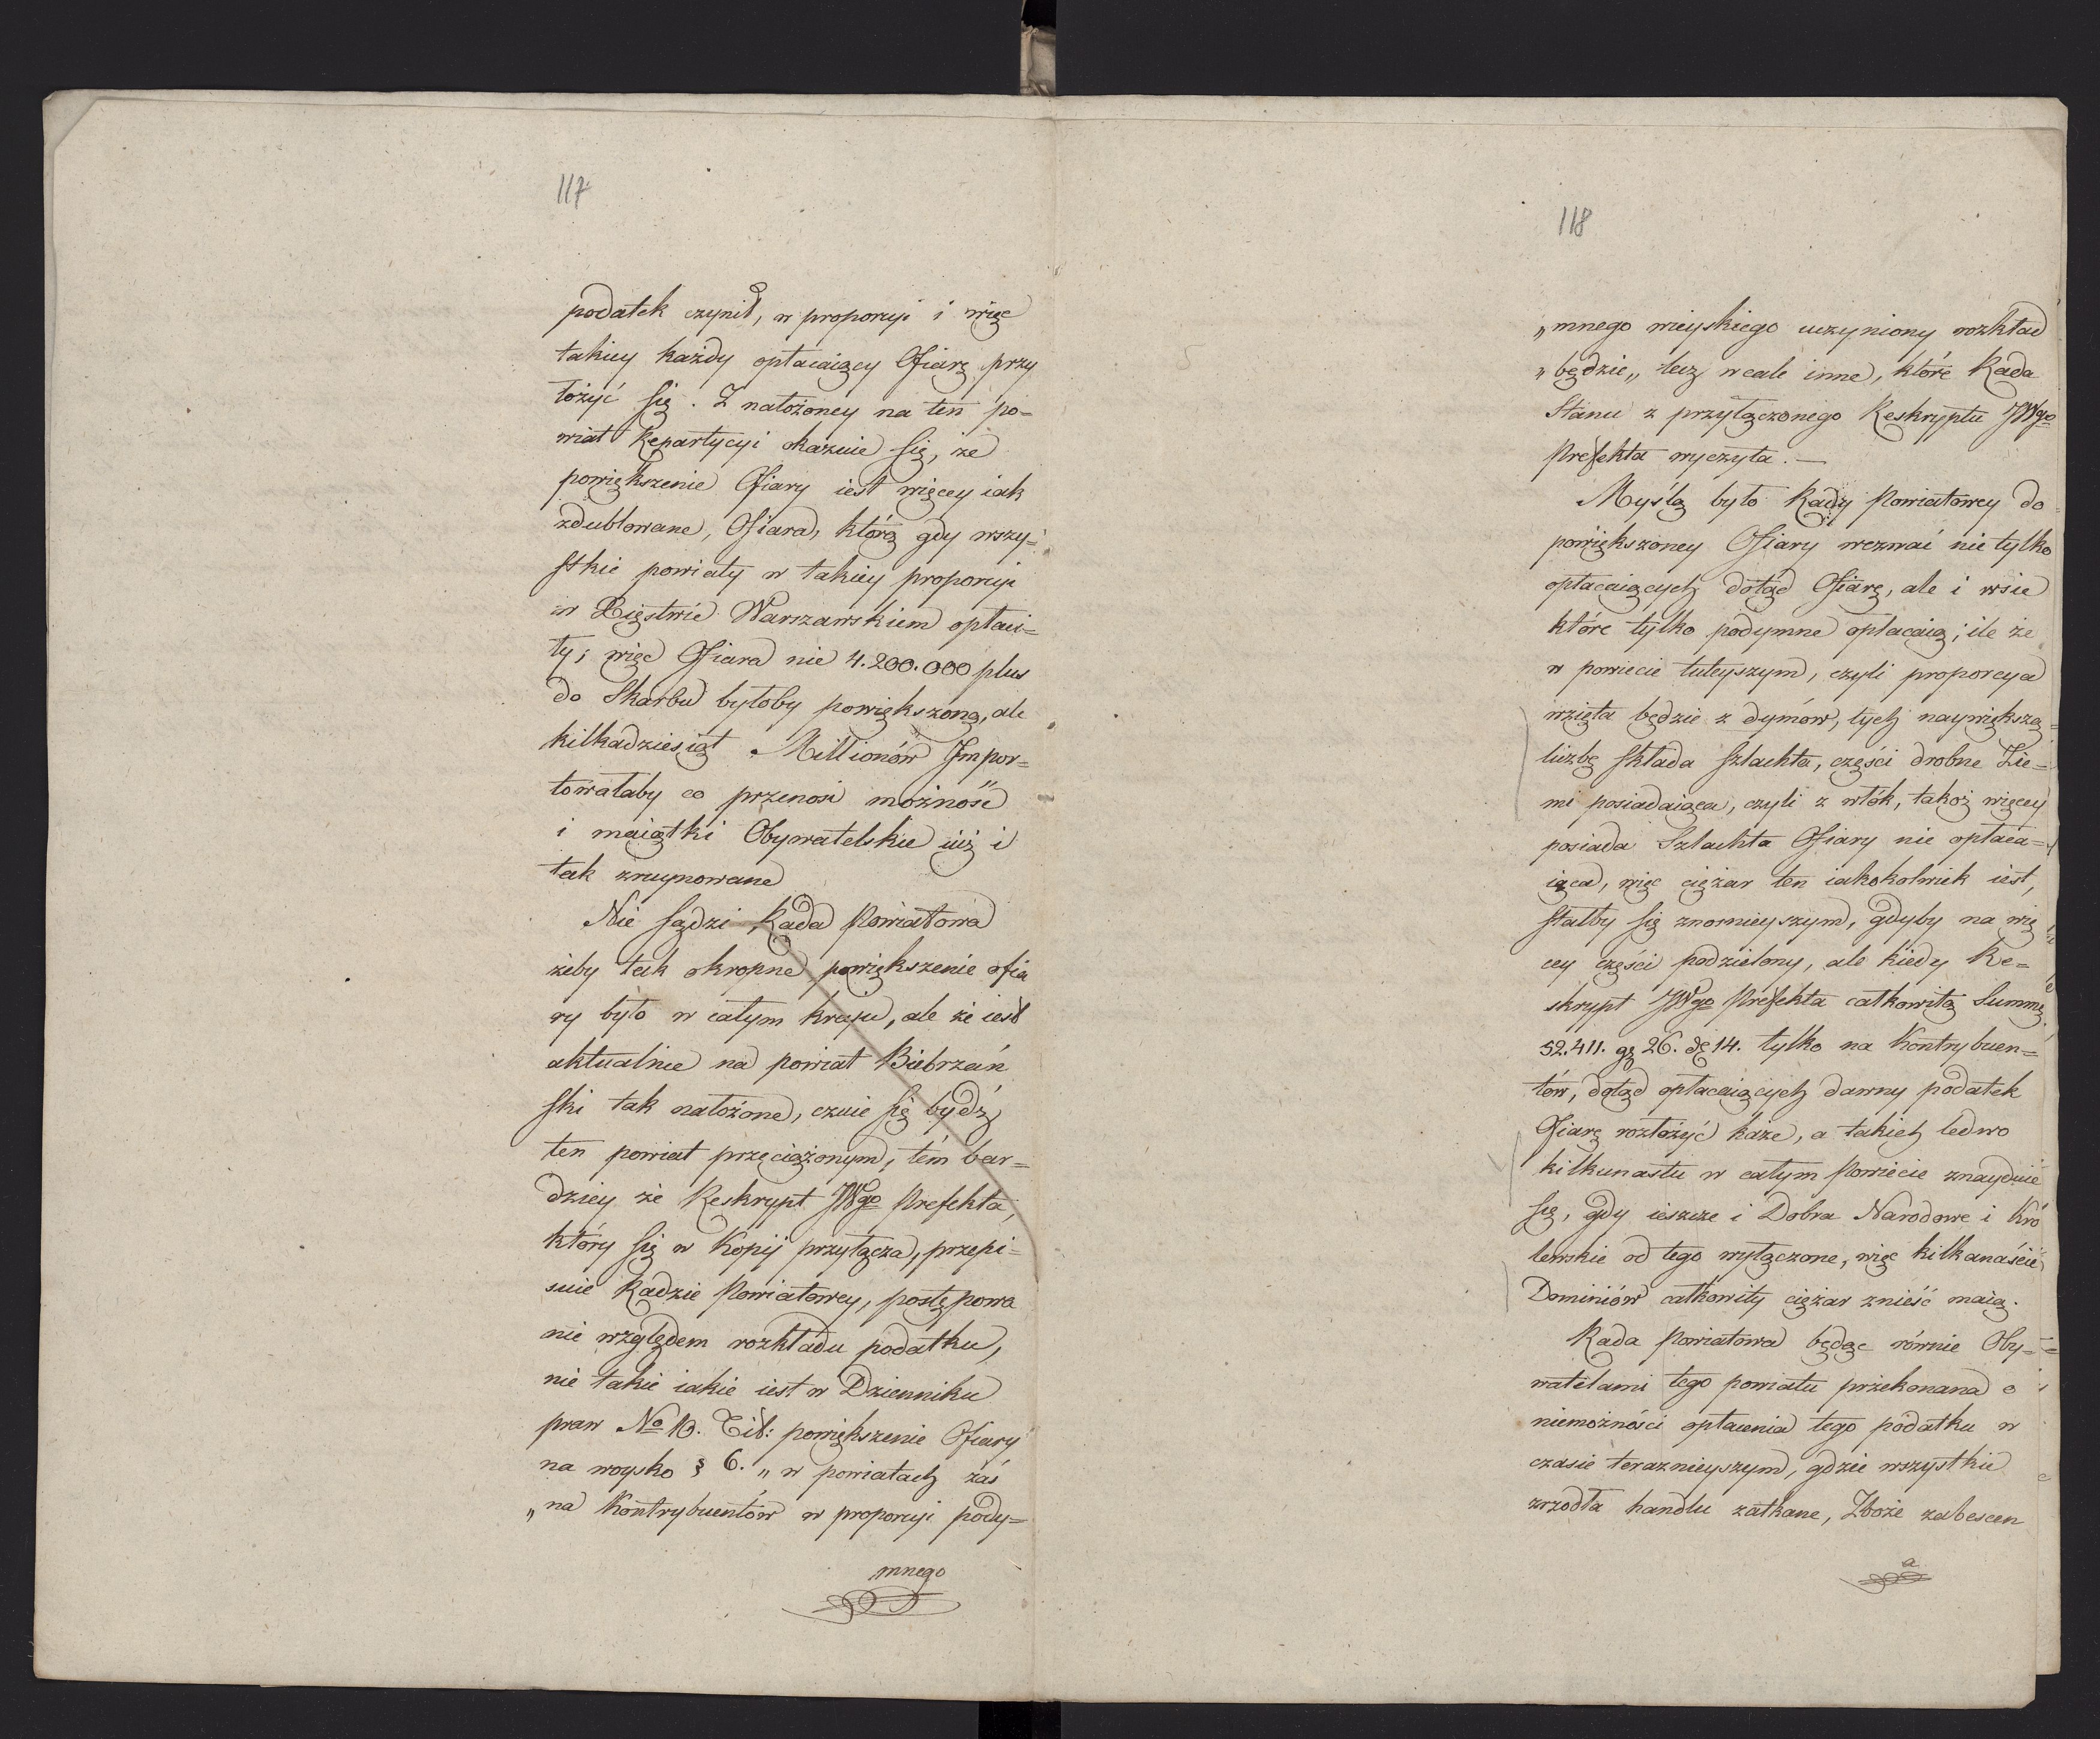 117
podatek czynił, w proporcyi i więc
takiey każdy opłacaiący Ofiarę przy
łożyć się. Z nałożoney na ten po=
wiat Repartycyi okazuie się, że
powiększenie Ofiary iest więcey iak
zdublowane, Ofiara, którą gdy wszy=
stkie powiaty w takiey proporcyi
w Xięstwie Warszawskiem opłaci=
ły; więc Ofiara nie 4.200.000 plus
do Skarbu byłoby powiększoną, ale
kilkadziesiąt Millionów Impor=
towałaby co przenosi możność
i maiątki Obywatelskie iuż i
tak zruynowane
Nie sądzi Rada Powiatowa
żeby tak okropne powiększenie ofia
ry było w całym kraju, ale że iest
aktualnie na powiat Biebrzań
ski tak nałożone, czuie się bydź
ten powiat przeciążonym, tém bar=
dziey że Reskrypt JWgo Prefekta,
który się w Kopij przyłącza, przepi=
suie Radzie Powiatowey, postępowa
nie względem rozkładu podatku,
nie takie iakie iest w Dzienniku
praw No 10. Tit: powiększenie Ofiary
na woysko § 6. „w powiatach zaś
„na Kontrybuentów w proporcyi pody=
mnego
118
„mnego wieyskiego uczyniony rozkład
„będzie„ lecz wcale inne, które Rada
Stanu z przyłączonego Reskryptu JWgo
Prefekta wyczyta. —
Myślą było Rady Powiatowey do
powiększoney Ofiary wezwać nie tylko
opłacaiących dotąd Ofiarę, ale i wsie
które tylko podymne opłacaią; ile że
w powiecie tuteyszym, czyli proporcya
wzięta będzie z dymów, tych naywiększą
liczbę składa szlachta, części drobne Zie=
mi posiadaiąca, czyli z włók, takoż więcey
posiada Szlachta Ofiary nie opłaca=
iąca, więc ciężar ten iakokolwiek iest,
stałby się znośnieyszym, gdyby na wię
cey części podzielony, ale kiedy Re=
skrypt JWgo Prefekta całkowitą Summę
52.411. gr 26. 14. tylko na Kontrybuen=
tów, dotąd opłacaiących dawny podatek
Ofiarę rozłożyć każe, a takich ledwo
kilkunastu w całym Powiecie znayduie
się, gdy ieszcze i Dobra Narodowe i Kró
lewskie od tego wyłączone, więc kilkanaście
Dominiów całkowity ciężar znieść maią.
Rada Powiatowa będąc równie Oby=
watelami tego powiatu przekonana o
niemożności opłacenia tego podatku w
czasie teraznieyszym, gdzie wszystkie
zrzodła handlu zatkane, Zboże zabescen
a